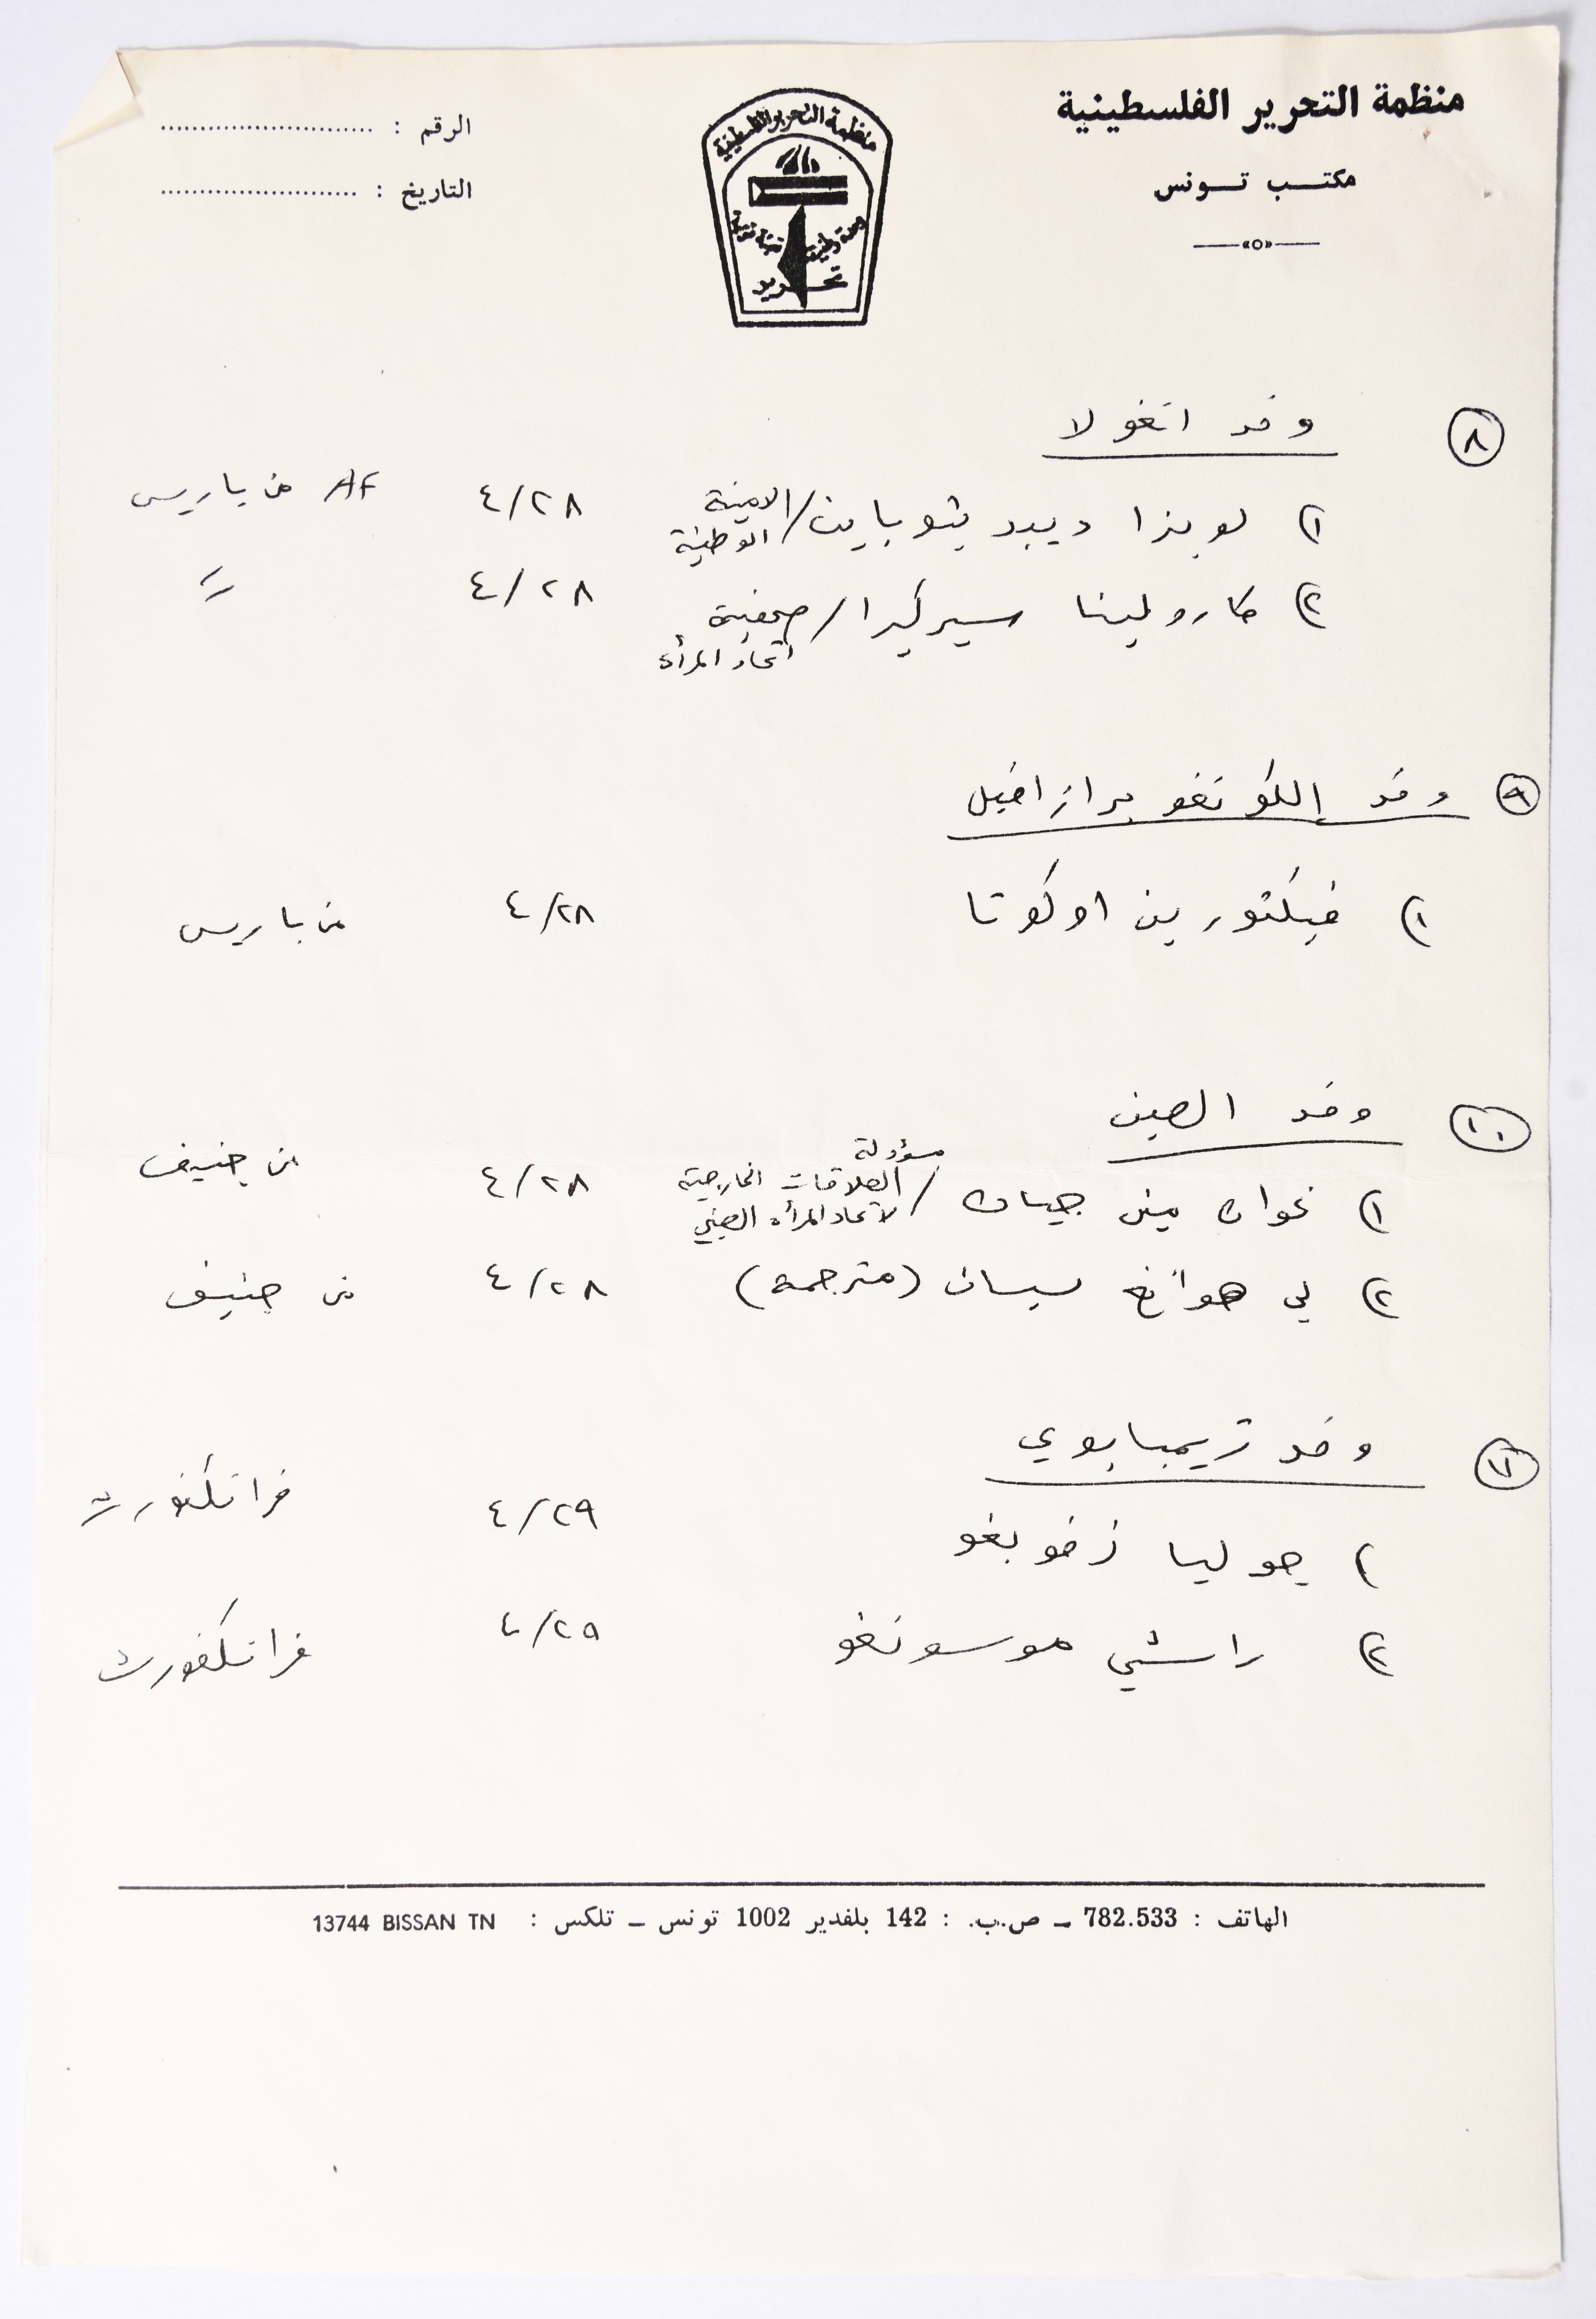 منظمة التحرير الفلسطينية
مكتب تونس
الرقم :
التاريخ :
منظمة التحرير الفلسطينية
وحدة وطنية تعبئة قومية
تحرير
٨ وفد انغولا
١) لويزا ديبد يتوباين / الامينة الوطنية ٤/٢٨ AF من باريس
٢) كارولينا سيركيرا / صحفية اتحاد المرأة ٤/٢٨ "
٩ وفد الكونغو برازافيل
١) فيكتورين اوكوتا ٤/٢٨ من باريس
١٠ وفد الصين
١) غوان مين جيان / مسؤولة العلاقات الخارجية لاتحاد المرأة الصيني ٤/٢٨ من جنيف
٢) لي هوانغ سيان (مترجمة) ٤/٢٨ من جنيف
١١ وفد زيمبابوي
١) جوليا زفوبغو ٤/٢٩ فرانكفورت
٢) راشي موسونغو ٤/٢٩ فرانكفورت
الهاتف : 782.533 – ص.ب. : 142 بلفدير 1002 تونس – تلكس : 13744 BISSAN TN